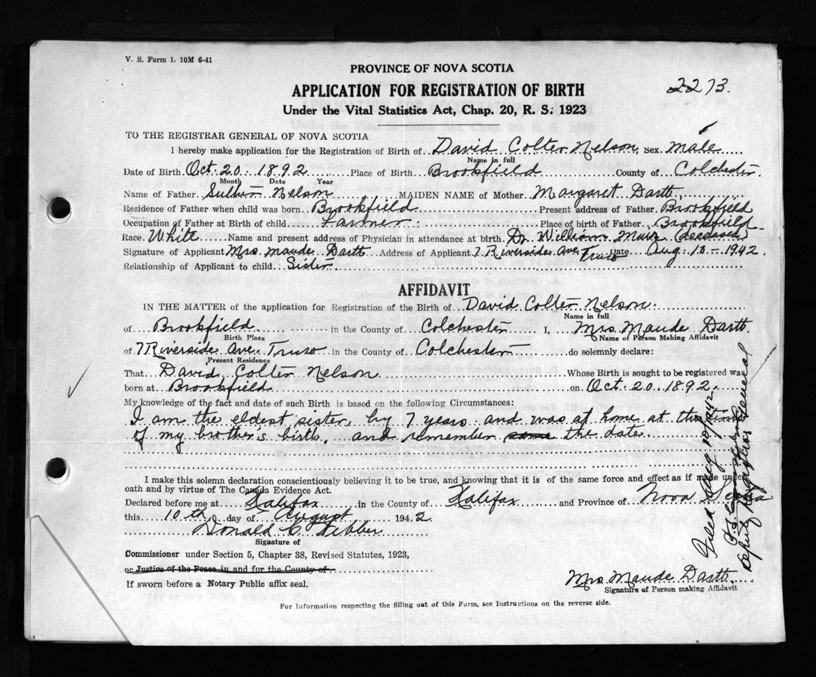 V. S. Form 1. 10M 6-41
PROVINCE OF NOVA SCOTIA
APPLICATION FOR REGISTRATION OF BIRTH
2273.
Under the Vital Statistics Act, Chap. 20, R. S. 1923
TO THE REGISTRAR GENERAL OF NOVA SCOTIA
I hereby make application for the Registration of Birth of David Colter Nelson Sex male
Name in full
Date of Birth Oct. 20. 1892 Place of Birth Brookfield County of Colchester
Month Date Year
Name of Father Nelson MAIDEN NAME of Mother Margaret Dartt
Residence of Father when child was born Brookfield Present address of Father Brookfield
Occupation of Father at Birth of child Farmer Place of birth of Father Brookfield
Race White Name and present address of Physician in attendance at birth Dr. William Muir
Signature of Applicant Mrs. Maude Dartt Address of Applicant 7 Riverside Ave. Truro Date Aug. 10 - 1942.
Relationship of Applicant to child Sister
AFFIDAVIT
IN THE MATTER of the application for Registration of the Birth of David Colter Nelson.
Name in full
of Brookfield in the County of Colchester I, Mrs. Maude Dartt
Birth Place Name of Person Making Affidavit
of 7 Riverside Ave. Truro in the County of Colchester do solemnly declare:
Present Residence
That David Colter Nelson Whose Birth is sought to be registered was
born at Brookfield on Oct. 20 1892.
My knowledge of the fact and date of such Birth is based on the following Circumstances:
I am the eldest sister, by 7 years and was at home at the time
of my brother's birth, and remember same the date.
I make this solemn declaration conscientiously believing it to be true, and knowing that it is of the same force and effect as if made under
oath and by virtue of The Canada Evidence Act.
Declared before me at Halifax in the County of Halifax and Province of Nova Scotia
this 10th day of August 1942
Donald C.
Signature of
Commissioner under Section 5, Chapter 38, Revised Statutes, 1923,
or Justice of the Peace in and for the County of
If sworn before a Notary Public affix seal.
Mrs. Maude Dartt
Signature of Person making Affidavit
For Information respecting the filling out of this Form, see Instructions on the reverse side.
Filed Aug 10/1942
Deputy Registrar General